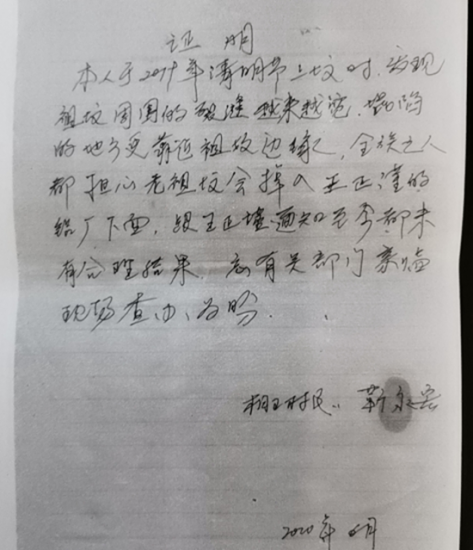 证明
本人于2019年清明节上坟时,发现
祖坟周围的裂缝越来越宽,塌陷
的地方更靠近祖坟边缘,全族之人
都担心老祖坟会掉入王正
厂下面,王正通知至今都未
有合理结果。有关部门亲临
现场查办、为盼.
村民:靳
2020年6月